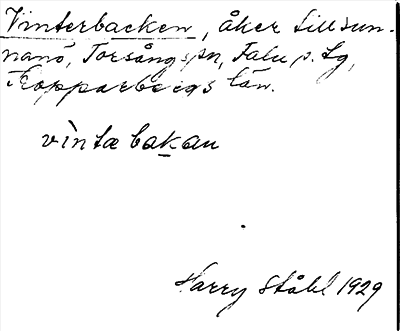 Vinterbacken, åker till Sun-
nanö, Torsång sn, Falu p. lg,
Kopparbergs län.
vìntæbakan
Harry Ståhl 1929